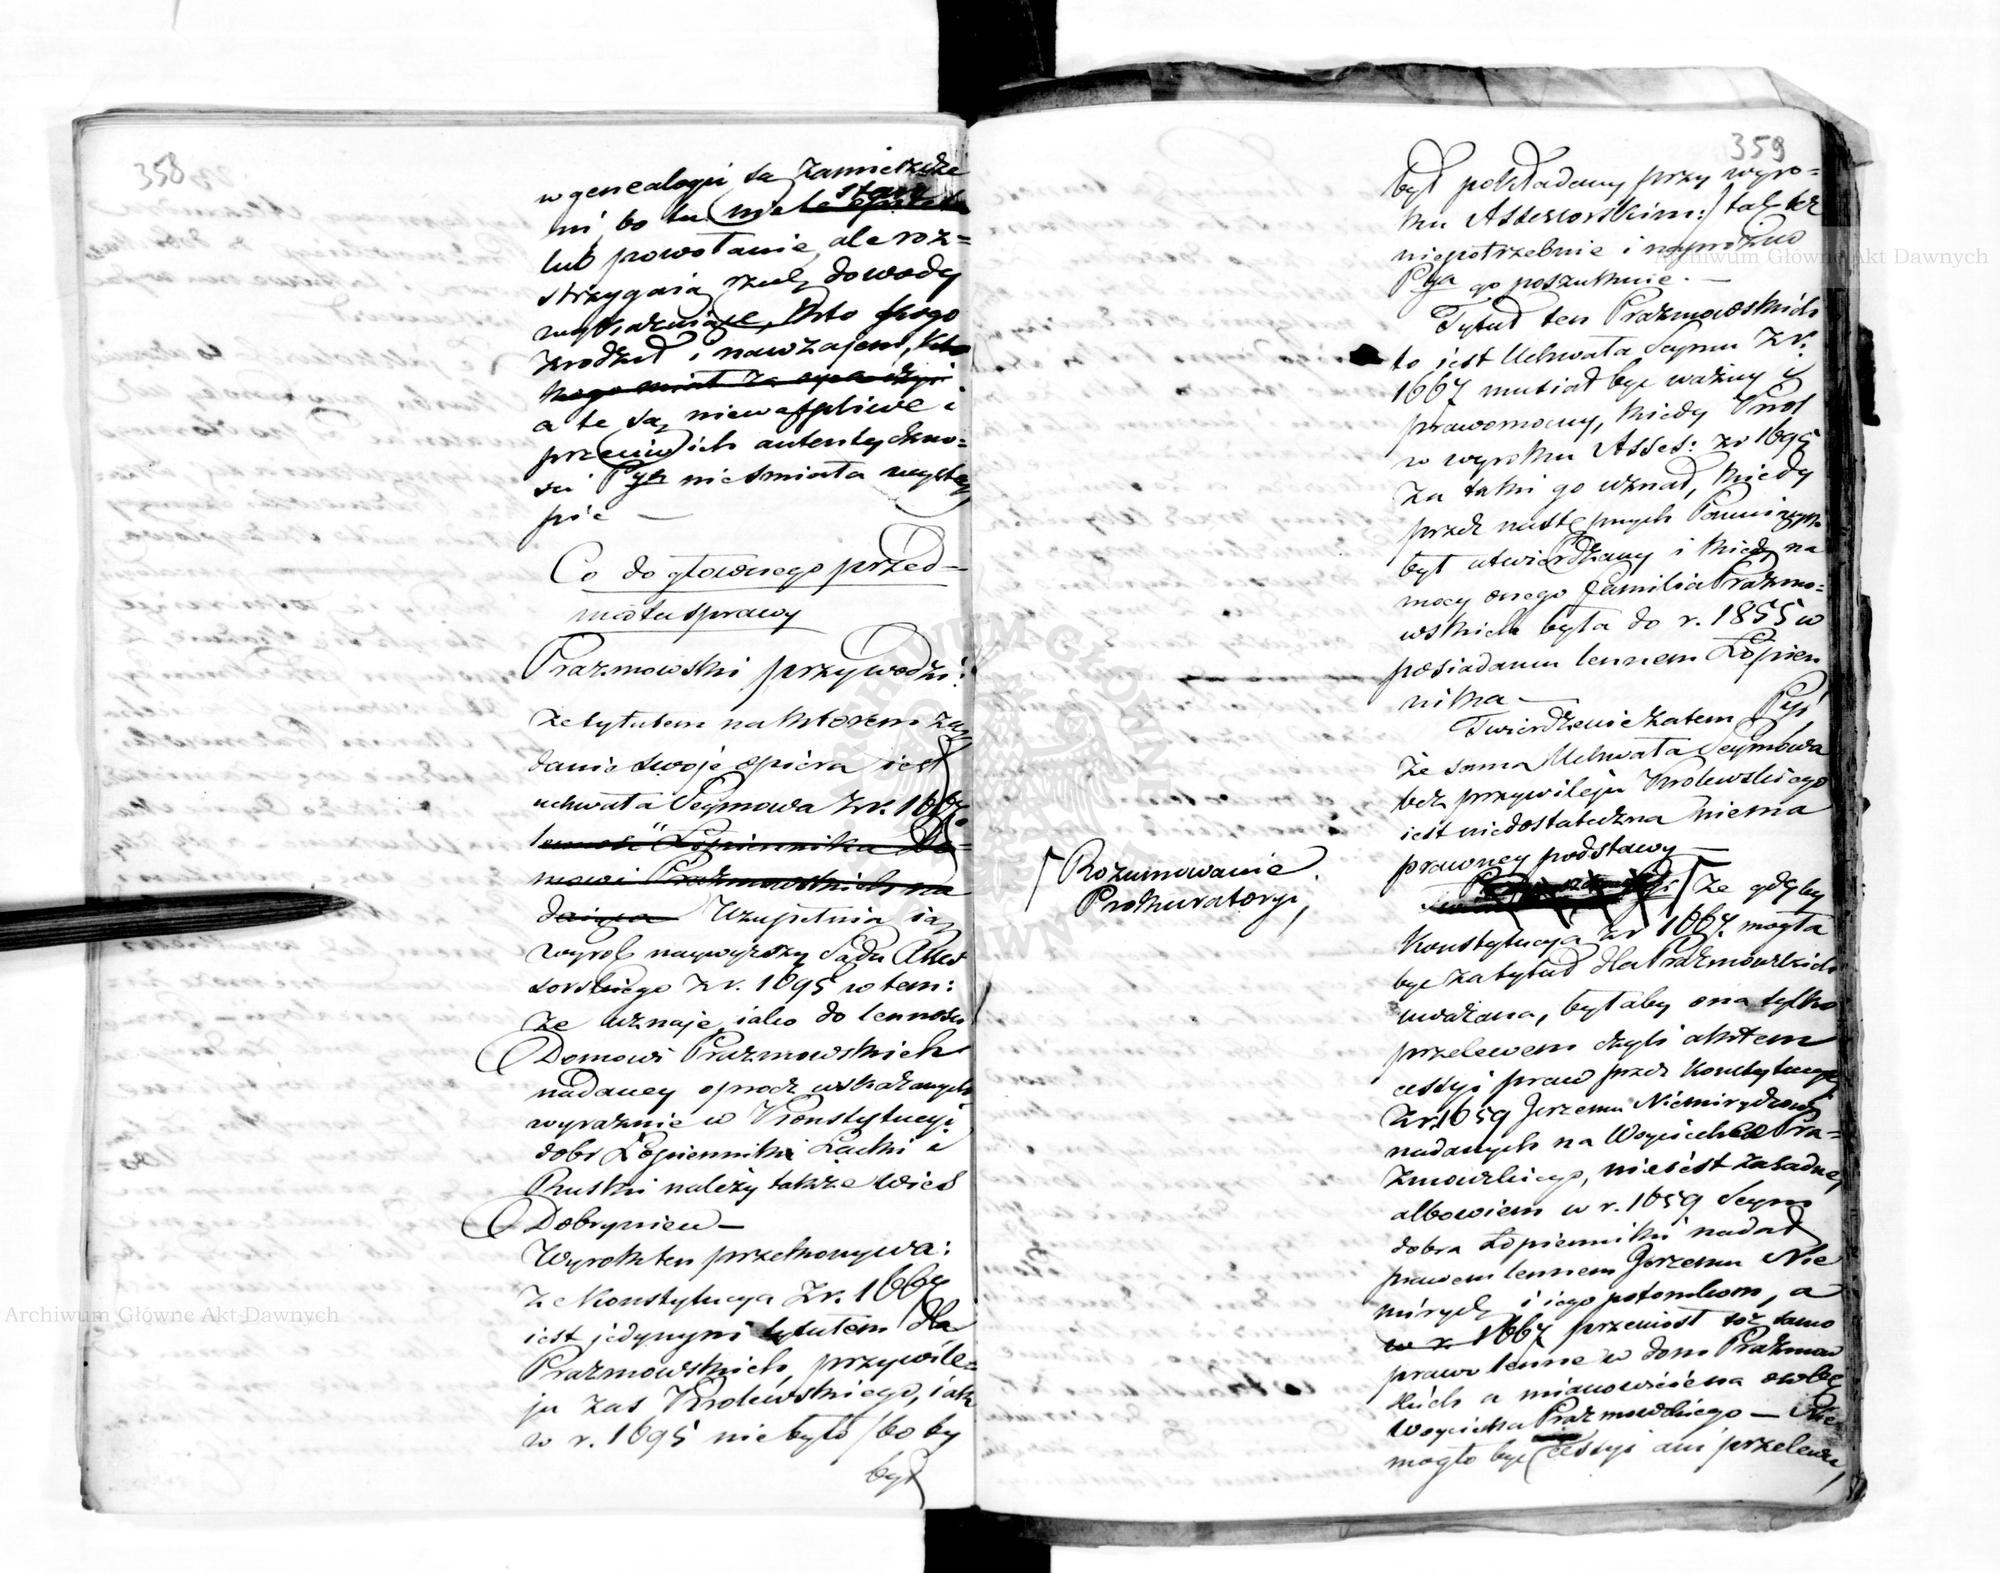 358
w genealogii są zamieszcze
ni bo tu nie
lub powołanie, ale roz=
strzygaią rzecz dowody
wykazuiące, kto kogo
zrodził i nawzajem, kto
kogo miał za oyca i żyi
a te są niewątpliwe i
przeciw ich autentyczno=
ści Pya nie śmiała wystą
pić —
Co do głównego przed=
miotu sprawy
Prazmowski przywodzi:
że tytułem na którem żą
danie swoje opiera iest
uchwała Seymowa z r. 1667.
lenność Łopiennika Do=
mowi Prazmowskich na
daiąca Uzupełnia ią
wyrok naywyższy Sądu Asses
sorskiego z r. 1695 w tem:
że uznaje, iako do lenności
Domowi Prazmowskich
nadaney oprócz wskazanych
wyraźnie w Konstytucyi
dobr Łopienniki Lacki i
Ruski należy także wieś
Dobryniew —
Wyrok ten przekonywa:
że Konstytucya z r. 1667
iest jedynym tytułem dla
Prazmowskich, przywile=
ju zaś Krolewskiego, iak
w r. 1695 nie było /bo by
był
359
był pokładany przy wyro=
ku Assessorskim:/ tak też
niepotrzebnie i naprożno
Pya go poszukuie. —
Tytuł ten Prazmowskich
to iest Uchwała Seymu z r.
1667 musiał być ważny i
prawomocny, kiedy Krol
w wyroku Asses: z r 1695
za taki go uznał, kiedy
przez następnych Panuiących
był utwierdzany i kiedy na
mocy onego familia Prazmo=
wskich była do r. 1855 w
posiadaniu lennem Łopien
nika —
Twierdzenie zatem Pyi,
że sama Uchwała Seymowa
bez przywileju Krolewskiego
iest niedostateczna niema
prawney podstawy —
Rozumowanie
Prokuratoryi,
że gdyby
Konstytucya z r 1667. mogła
być za tytuł dla Prazmowskich
uważana, byłaby ona tylko
przelewem czyli aktem
cessyi praw przez Konstytucyę
z r. 1659 Jerzemu Niemiryczowi
nadanych na Woyciecha Pra=
zmowskiego, nie iest zasadne,
albowiem w r. 1659 Seym
dobra Łopienniki nadał
prawem lennem Jerzemu Nie
miryczy i iego potomkom, a
w r. 1667 przeniosł toż samo
prawo lenne w dom Prazmow
skich a mianowicie na osobę
Woyciecha Prazmowskiego — Nie
mogło być cessyi ani przelewu,